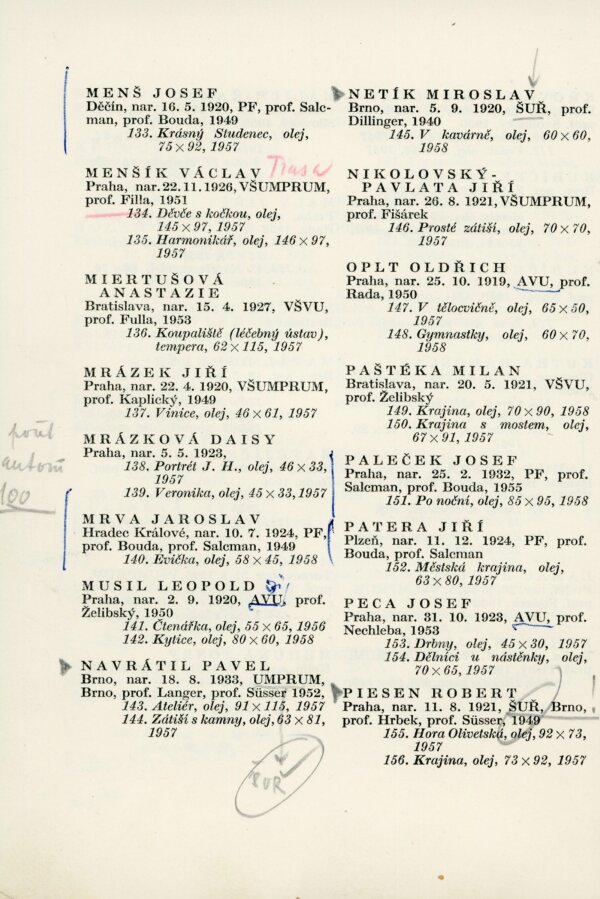 MENŠ JOSEF
Děčín, nar. 16. 5. 1920, PF, prof. Salc-
man, prof. Bouda, 1949
133. Krásný Studenec, olej,
75×92, 1957
MENŠÍK VÁCLAV Trasa
Praha, nar. 22. 11. 1926, VŠUMPRUM,
prof. Filla, 1951
134. Děvče s kočkou, olej,
145×97, 1957
135. Harmonikář, olej, 146×97,
1957
MIERTUŠOVÁ
ANASTAZIE
Bratislava, nar. 15. 4. 1927, VŠVU,
prof. Fulla, 1953
136. Koupaliště (léčebný ústav),
tempera, 62×115, 1957
MRÁZEK JIŘÍ
Praha, nar. 22. 4. 1920, VŠUMPRUM,
prof. Kaplický, 1949
137. Vinice, olej, 46×61, 1957
MRÁZKOVÁ DAISY
Praha, nar. 5. 5. 1923,
138. Portrét J. H., olej, 46×33,
1957
139. Veronika, olej, 45×33, 1957
autorů
100
MRVA JAROSLAV
Hradec Králové, nar. 10. 7. 1924, PF,
prof. Bouda, prof. Salcman, 1949
140. Evička, olej, 58×45, 1958
MUSIL LEOPOLD
Praha, nar. 2. 9. 1920, AVU, prof.
Želibský, 1950
141. Čtenářka, olej, 55×65, 1956
142. Kytice, olej, 80×60, 1958
NAVRÁTIL PAVEL
Brno, nar. 18. 8. 1933, UMPRUM,
Brno, prof. Langer, prof. Süsser 1952,
143. Ateliér, olej, 91×115, 1957
144. Zátiší s kamny, olej, 63×81,
1957
ŠUŘ
NETÍK MIROSLAV
Brno, nar. 5. 9. 1920, ŠUŘ, prof.
Dillinger, 1940
145. V kavárně, olej, 60×60,
1958
NIKOLOVSKÝ-
PAVLATA JIŘÍ
Praha, nar. 26. 8. 1921, VŠUMPRUM,
prof. Fišárek
146. Prosté zátiší, olej, 70×70,
1957
OPLT OLDŘICH
Praha, nar. 25. 10. 1919, AVU, prof.
Rada, 1950
147. V tělocvičně, olej, 65×50,
1957
148. Gymnastky, olej, 60×70,
1958
PAŠTÉKA MILAN
Bratislava, nar. 20. 5. 1921, VŠVU,
prof. Želibský
149. Krajina, olej, 70×90, 1958
150. Krajina s mostem, olej,
67×91, 1957
PALEČEK JOSEF
Praha, nar. 25. 2. 1932, PF, prof.
Salcman, prof. Bouda, 1955
151. Po noční, olej, 85×95, 1958
PATERA JIŘÍ
Plzeň, nar. 11. 12. 1924, PF, prof.
Bouda, prof. Salcman
152. Městská krajina, olej,
63×80, 1957
PECA JOSEF
Praha, nar. 31. 10. 1923, AVU, prof.
Nechleba, 1953
153. Drbny, olej, 45×30, 1957
154. Dělníci u nástěnky, olej,
70×65, 1957
PIESEN ROBERT
Praha, nar. 11. 8. 1921, ŠUŘ, Brno, !
prof. Hrbek, prof. Süsser, 1949
155. Hora Olivetská, olej, 92×73,
1957
156. Krajina, olej, 73×92, 1957